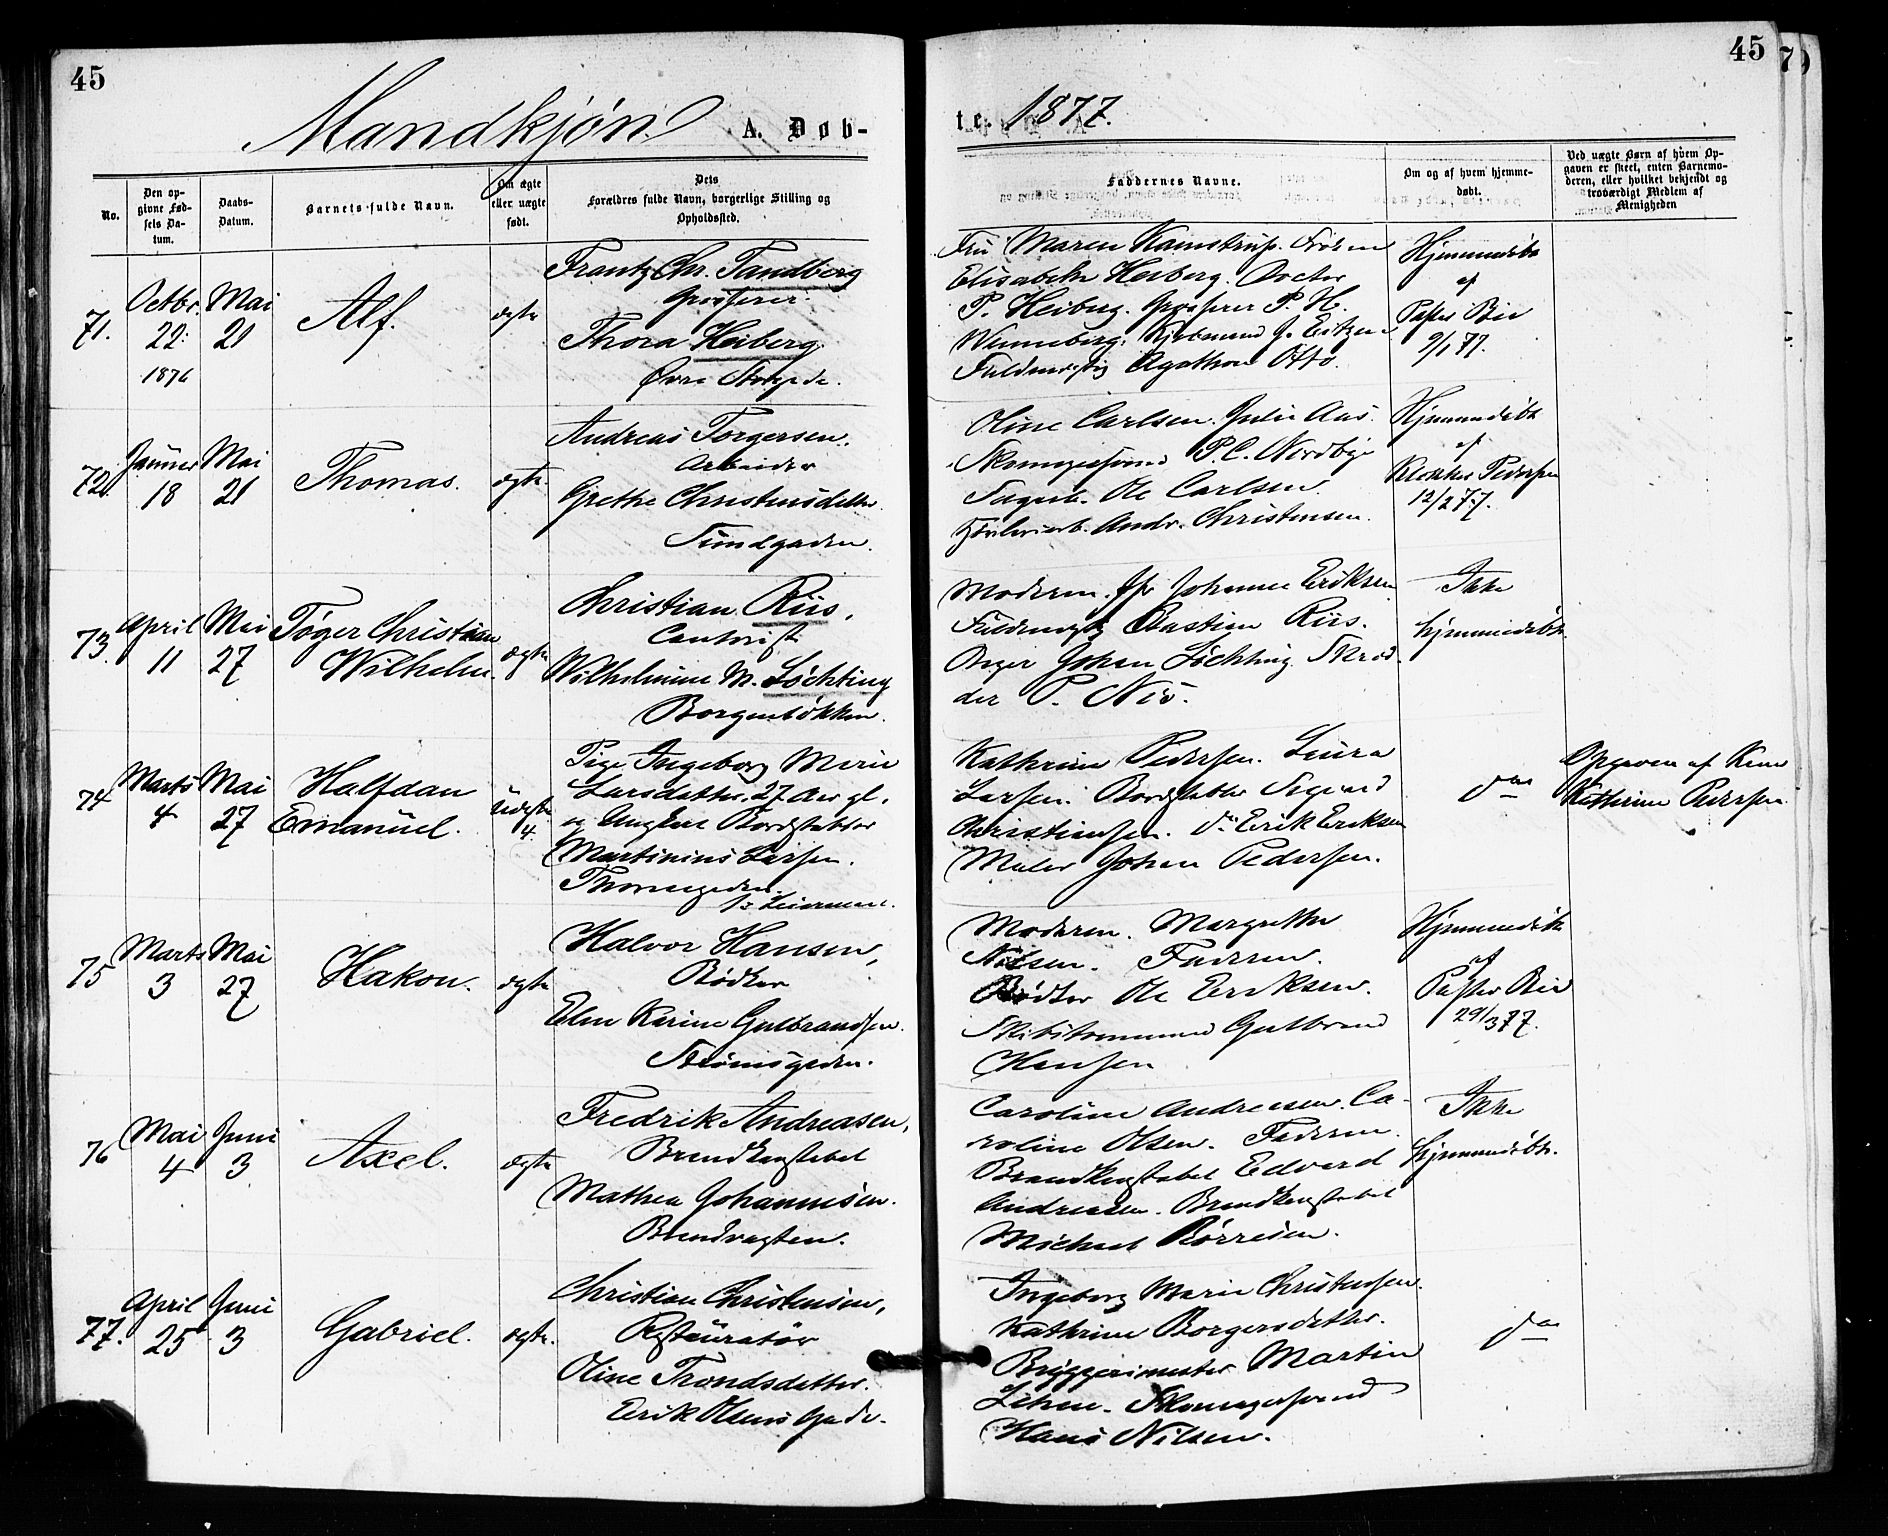 45
45
Mandkjøn. A. Døb-
te. 1877.
No.
Den op-
givne Fød-
sels Da-
tum.
Daabs-
Datum.
Barnets fulde Navn.
Om ægte
eller uægte
født.
Dets
Forældres fulde Navn, borgerlige Stilling og
Opholdssted.
Faddernes Navne.
Om og af hvem hjemme-
døbt.
Ved uægte Børn af hvem Op-
gaven er skeet, enten Barnemo-
deren, eller hvilket bekjendt og
troværdigt Medlem af
Menigheden
71.
Octbr.
22.
1876
Mai
21
Alf.
ægte
Frantz Chr. Tandberg
Grosserer.
Thora Heiberg.
Øvre Storgade.
Fru Maren Kamstrup. Frøken
Elisabeth Heiberg. Doctor
P. Heiberg. Grosserer P. H.
Kjøbmand J. Eitzen
Fuldmægtig Agathon Otto.
Hjemmedøbt
af
Pastor Bie
9/1 77.
72.
Januar
18
Mai
21
Thomas.
ægte.
Andreas Torgersen.
Arbeider
Grethe Christensdatter
Tundgaden.
Oline Carlsen. Julie Aas.
Skomagersvend P. C. Nordbye
Ole Carlsen.
Andr. Christensen.
Hjemmedøbt
af
Klokker Pedersen
12/2 77.
73.
April
11
Mai
27
Tøger Christian
Wilhelm.
ægte
Christian Riis,
Contorist
Wilhelmine M. Løchting
Borgenløkken.
Moderen. Johanne Eriksen
Fuldmægtig Bastian Riis.
Bager Johan Løchting. Skræd-
der P. Nis.
Ikke
hjemmedøbt.
74
Marts
4
Mai
27
Halfdan
Emanuel.
Uægte
4.
Pige Ingeborg Marie
Larsdatter. 27 Aar gl.
og Ungkarl Bordstabler
Martinius Larsen.
Thornegaden.
1s Leiermaal.
Kathrine Pedersen. Laura
Larsen. Bordstabler Sigvard
Christiansen. do Erik Eriksen
Maler Johan Pedersen.
do
Opgaven af Kone
Kathrine Pedersen.
75
Marts
3
Mai
27
Hakon.
ægte
Halvor Hansen,
Bødker
Elen Karine Gulbrandsen.
Strømsgaden.
Moderen. Margrethe
Nilsen. Faderen.
Bødker Ole Eriksen.
Skibstømmermand Gulbrand
Hansen
Hjemmedøbt
af
Pastor Bie
29/3 77.
76
Mai
4
Juni
3
Axel.
ægte
Fredrik Andreasen,
Brandkonstabel
Mathea Johannesen.
Brandvagten.
Caroline Andreasen. Ca-
roline Olsen. Faderen.
Brandkonstabel Edvard
Andreasen. Brandkonstabel
Michael Børresen.
Ikke
hjemmedøbt.
77.
April
25
Juni
3
Gabriel.
ægte.
Christian Christensen,
Restauratør
Oline Trondsdatter.
Erik Olsens Gade.
Ingeborg Marie Christensen.
Kathrine Borgersdatter.
Bryggerimester Martin
Lehne. Skomagersvend
Hans Nilsen.
do